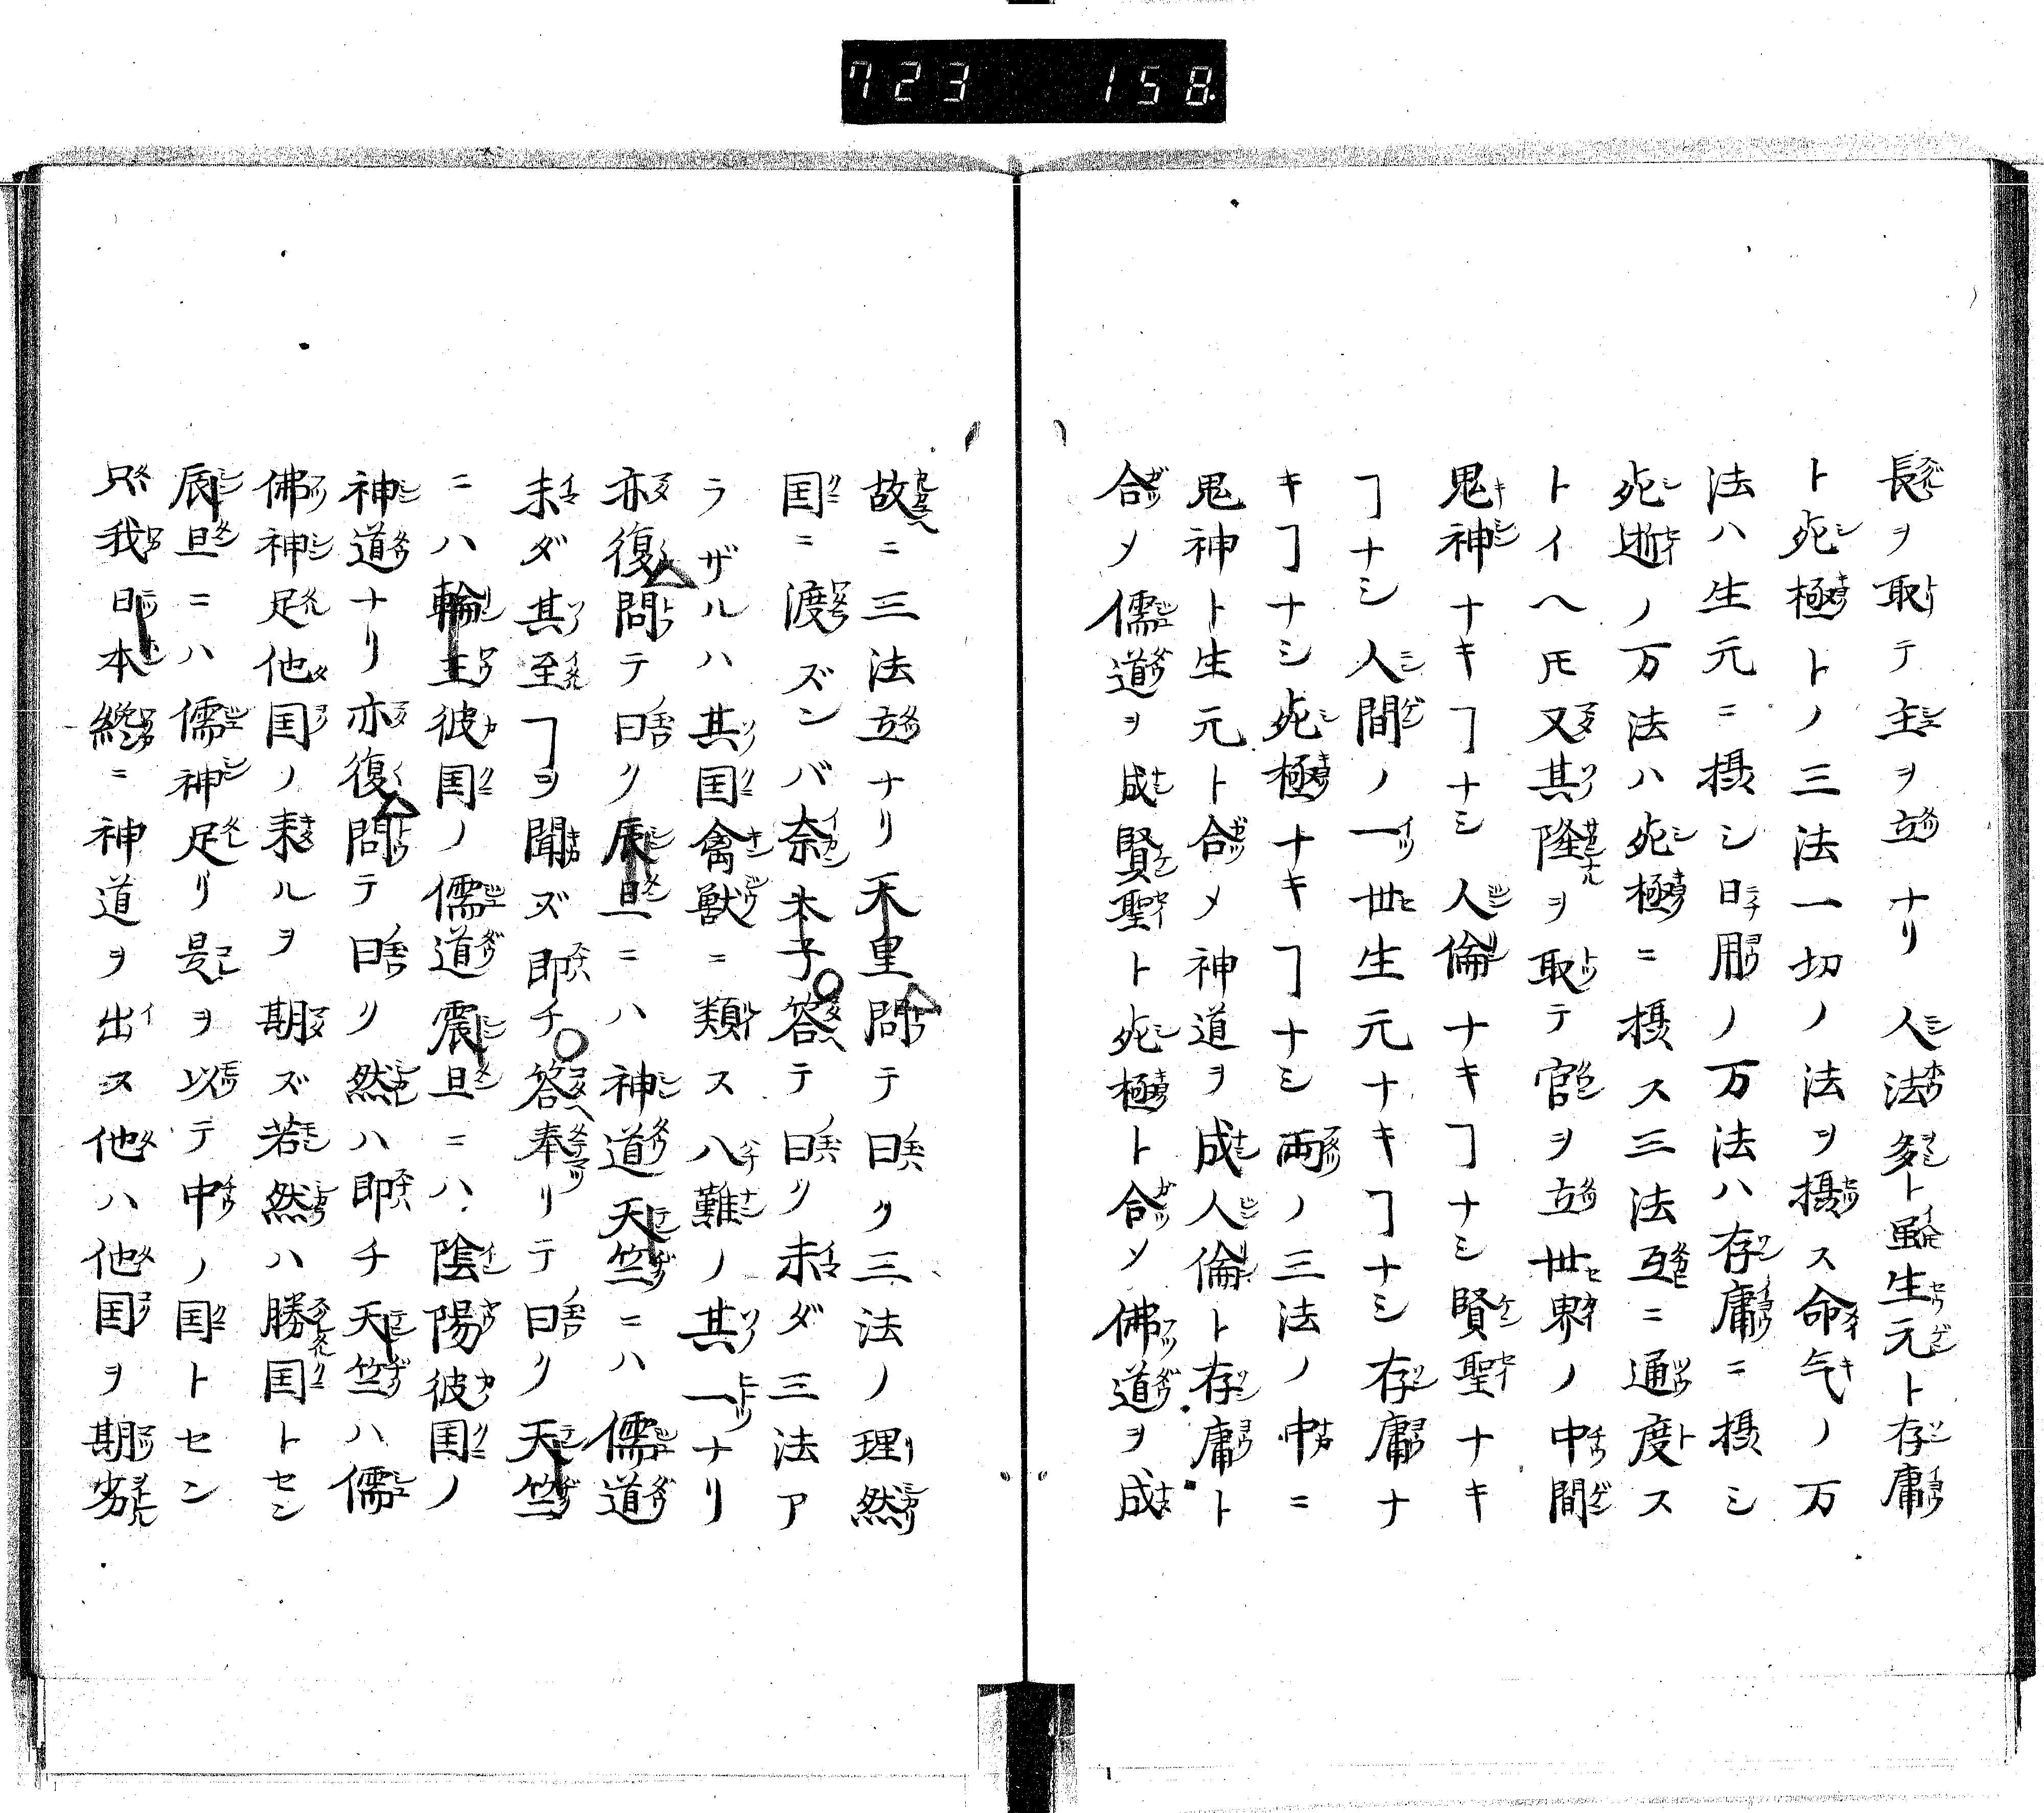 723 158
長ヲ取テ主ヲ立ナリ人法多ト虽生元ト存庸
ト死極トノ三法一切ノ法ヲ摂ス命气ノ万
法ハ生元ニ摂シ日用ノ万法ハ存庸ニ摂シ
死逝ノ万法ハ死極ニ摂ス三法互ニ通度ス
トイヘ𪜈又其隆ヲ取テ官ヲ立世界ノ中間
鬼神ナキヿナシ人倫ナキヿナシ賢聖ナキ
ヿナシ人間ノ一世生元ナキヿナシ存庸ナ
キヿナシ死極ナキヿナシ両ノ三法ノ中ニ
鬼神ト生元ト合メ神道ヲ成人倫ト存庸ト
合メ儒道ヲ成賢聖ト死極ト合メ佛道ヲ成
故ニ三法立ナリ禾里問テ曰ク三法ノ理然
国ニ渡ズンバ奈太子答テ曰ク未ダ三法ア
ラザルハ其国禽獣ニ類ス八難ノ其一ナリ
亦復問テ曰ク辰旦ニハ神道天竺ニハ儒道
未ダ其至ヿヲ聞ズ即チ答奉リテ曰ク天竺
ニハ輪王彼国ノ儒道震旦ニハ陰陽彼国ノ
神道ナリ亦復問テ曰ク然ハ即チ天竺ハ儒
佛神足他国ノ来ルヲ期ズ若然ハ勝国トセン
辰旦ニハ儒神足リ是ヲ以テ中ノ国トセン
只我日本終ニ神道ヲ出ス他ハ他国ヲ期劣